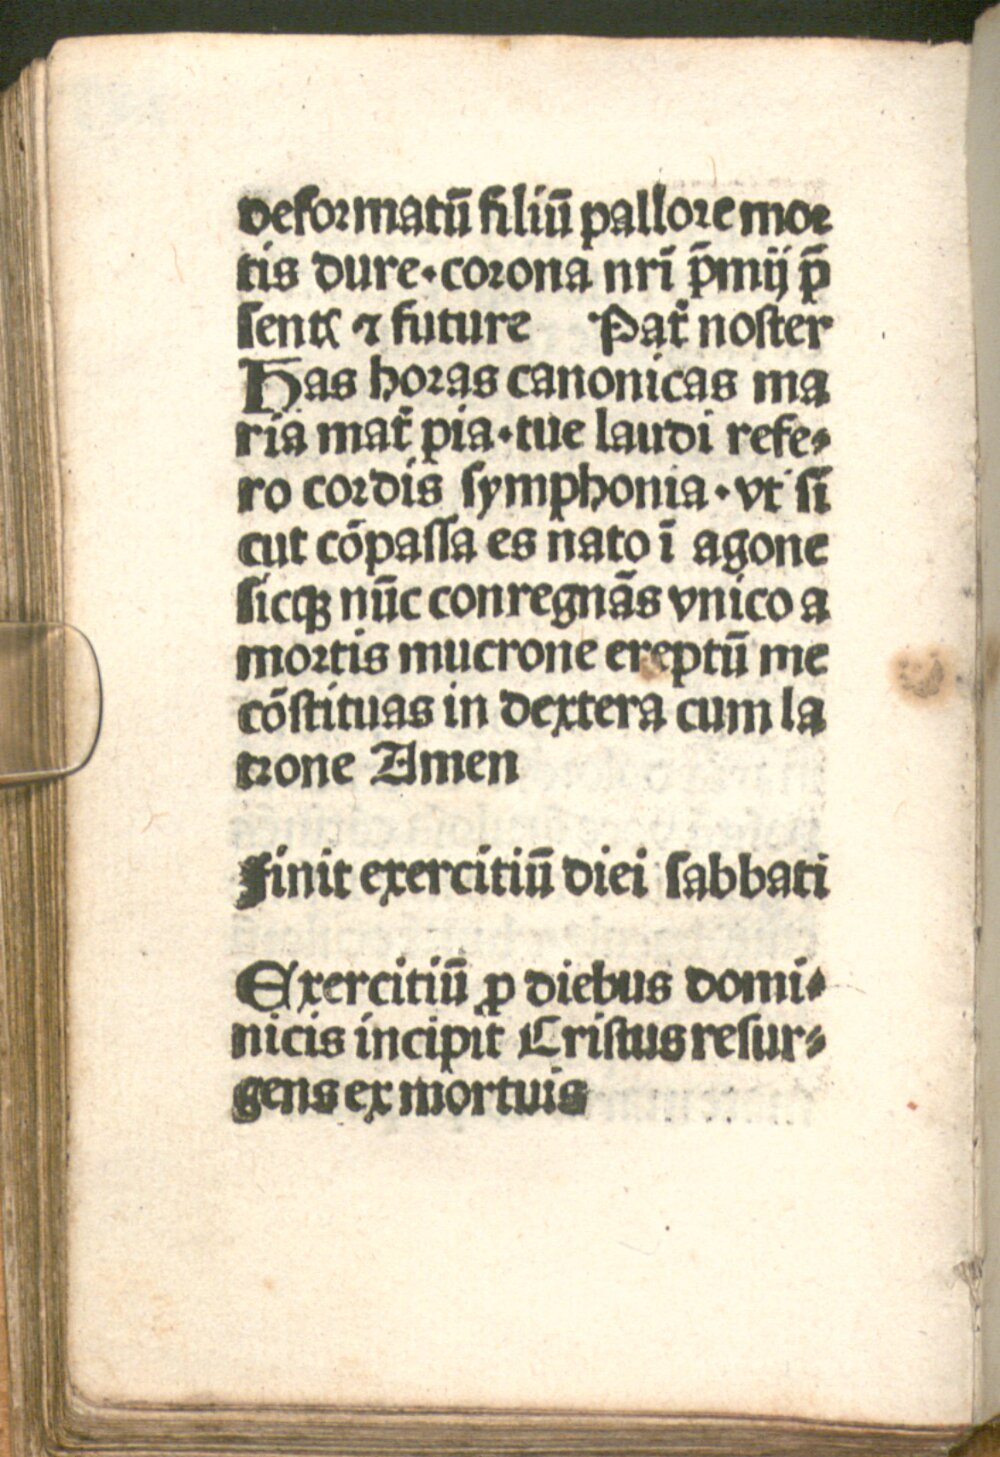 deformatū filiū pallore mor
tis dure · corona nr̄i p̄mij p̄
sentꝭ ⁊ future Pat̉ noster
Has horas canonicas ma
ria mat̉ pia · tue laudi refe⸗
ro cordis symphonia · vt si
cut cōpassa es nato ī agone
sicqꝫ nūc conregnās vnico a
mortis mucrone ereptū me
cōstituas in dextera cum la
trone Amen
Finit exercitiū diei sabbati
Exercitiū ꝓ diebus domi⸗
nicis incipit Cristus resur⸗
gens ex mortuis